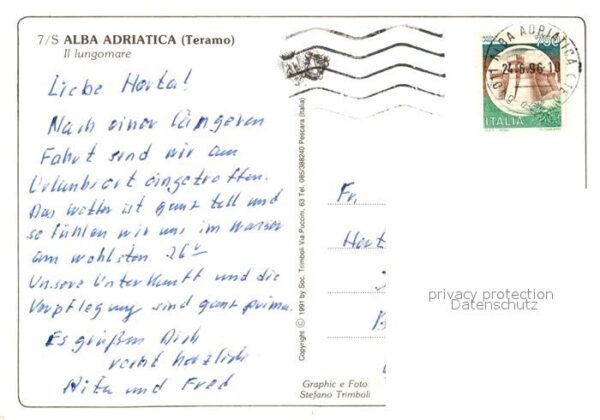 7/S ALBA ADRIATICA (Teramo)
Il lungomare
Liebe Herta!
Nach einer längeren
Fahrt sind wir am
Urlaubsort eingetroffen.
Das Wetter ist ganz toll und
so fühlen wir uns im Wasser
am wohlsten. 26°
Unsere Unterkunft und die
Verpflegung sind ganz prima.
Es grüßen Dich
recht herzlich
Rita und Fred
Copyright © 1991 by Soc. Trimboli Via Puccini, 63 Tel. 085/388240 Pescara (Italia)
Graphic e Foto
Stefano Trimboli
ALBA ADRIATICA (TE)
24.6.96.18
750
ITALIA
Fr
Hert
privacy protection
Datenschutz